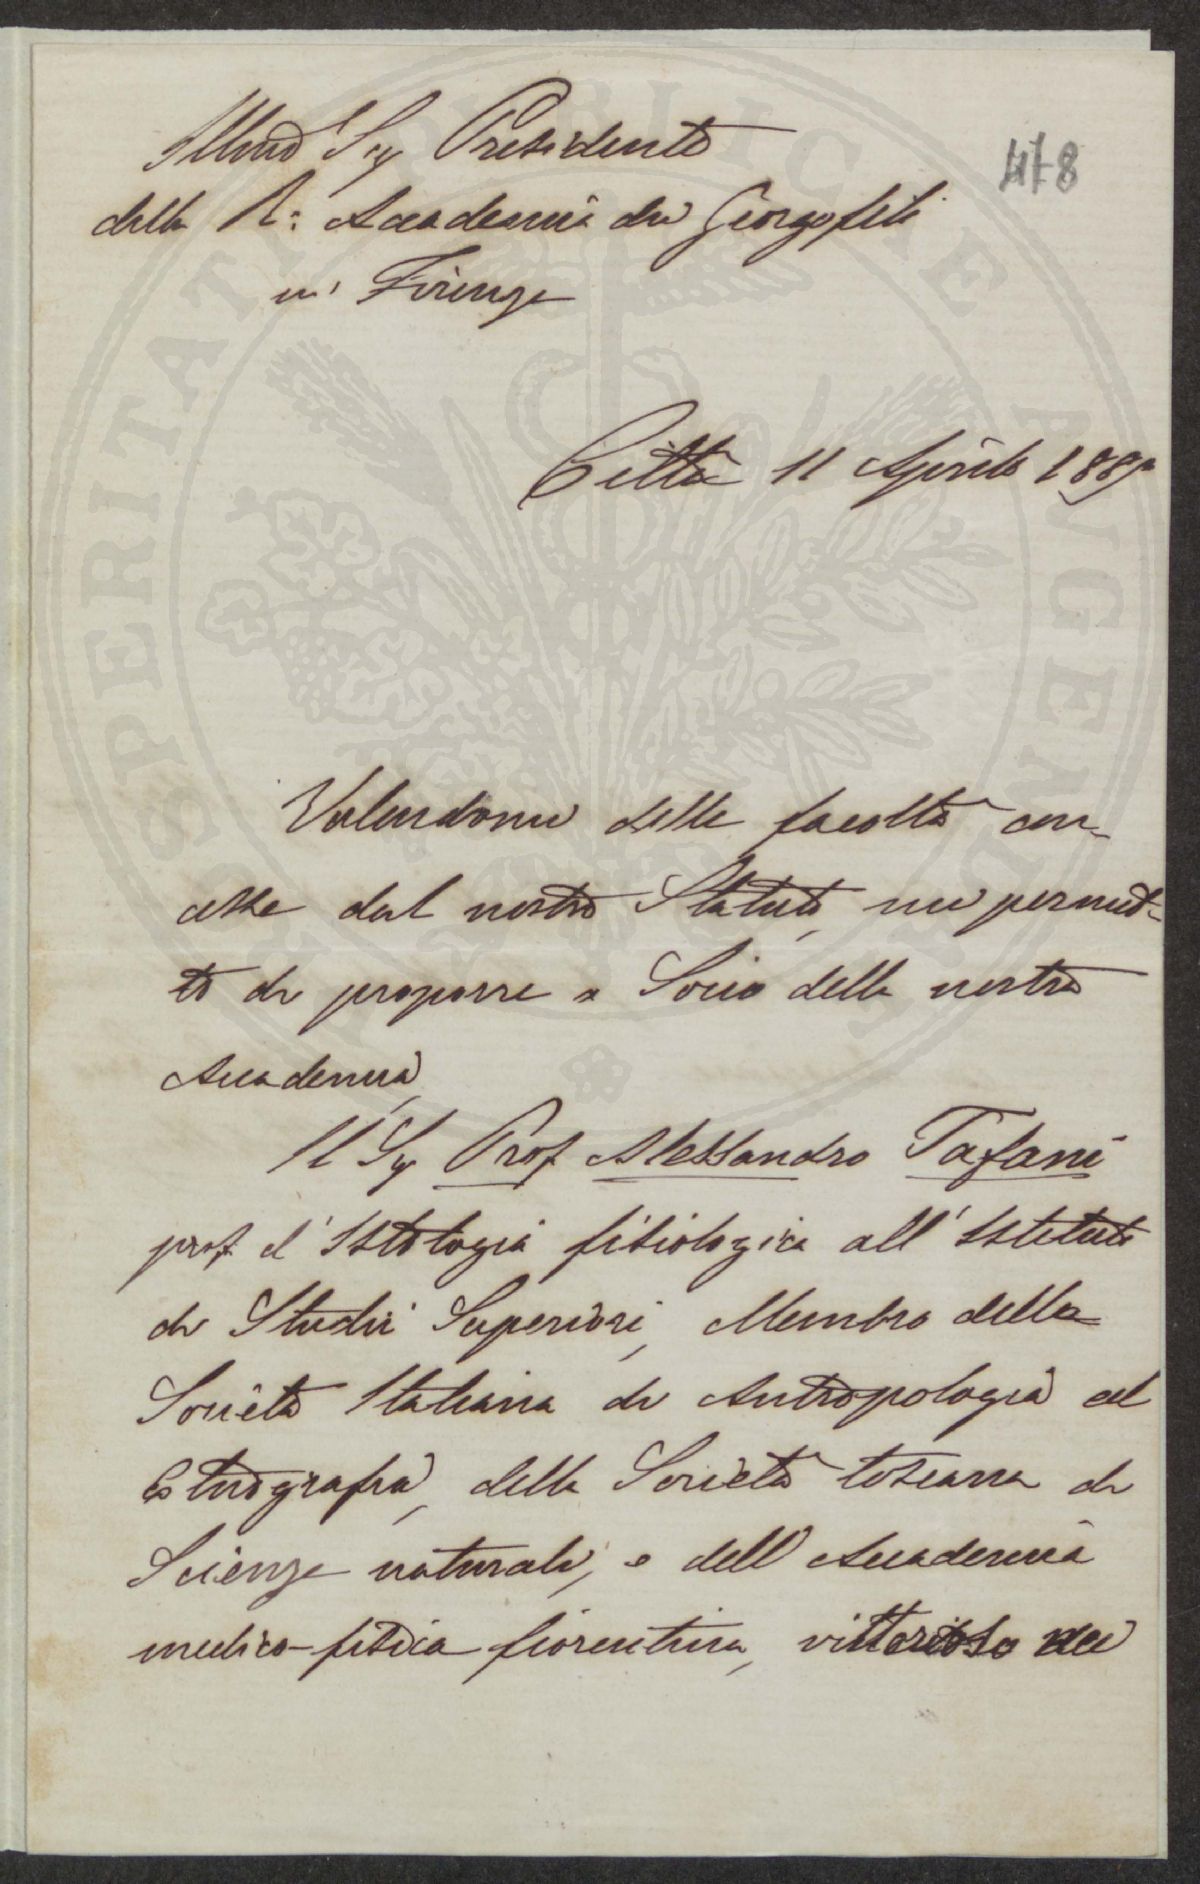 Illmo Sig Presidente
478
della R: Accademia dei Georgofili
in Firenze
Città 11 Aprile 188
Valendomi delle facoltà con-
cesse dal nostro Statuto, mi permet-
to di proporre a Socio della nostra
Accademia,
Il Sig Prof Alessandro Tafani
prof d'Istologia fisiologica all'Istituto
di Studii Superiori, Membro della
Società Italiana di Antropologia ed
Etnografia, della Società toscana di
Scienze naturali, e dell'Accademia
medico-fisica fiorentina, vittorioso nei
PROSPERITATI PUBLICAE AVGENDAE